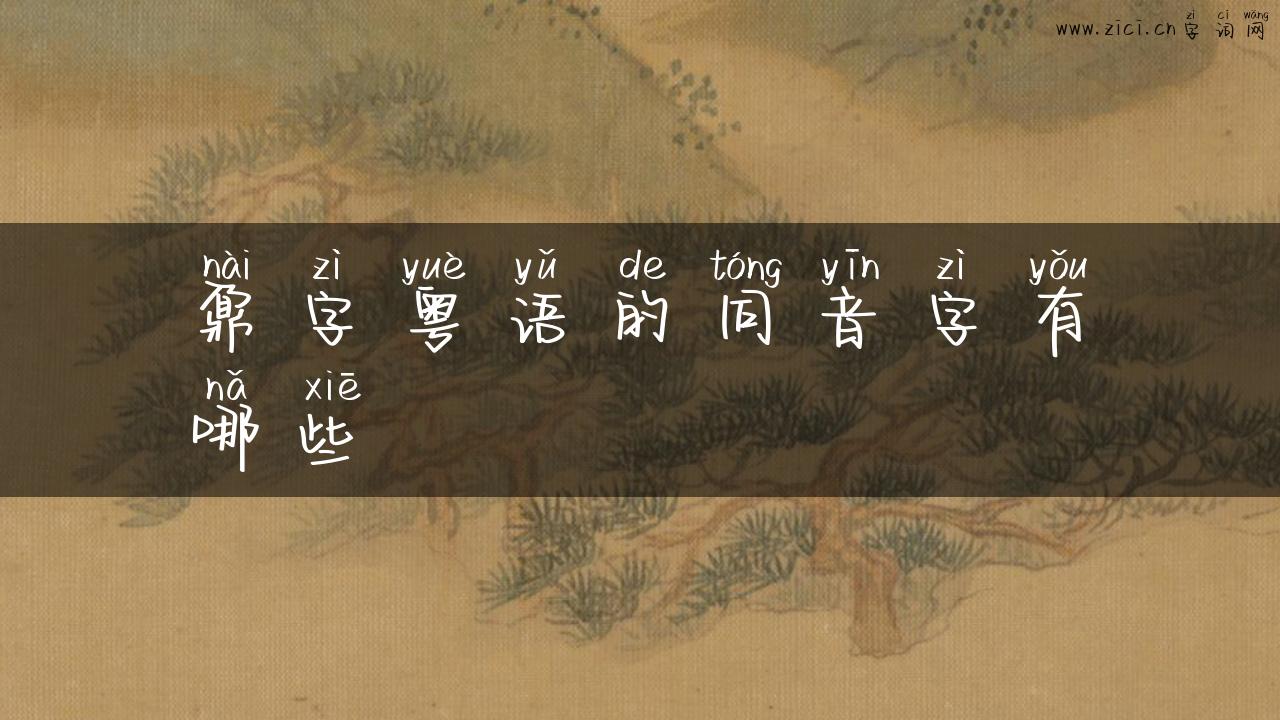 www.zici.cn
zì cí wǎng
字词网
nài zì yuè yǔ de tóng yīn zì yǒu
鼐字粤语的同音字有
nǎ xiē
哪些